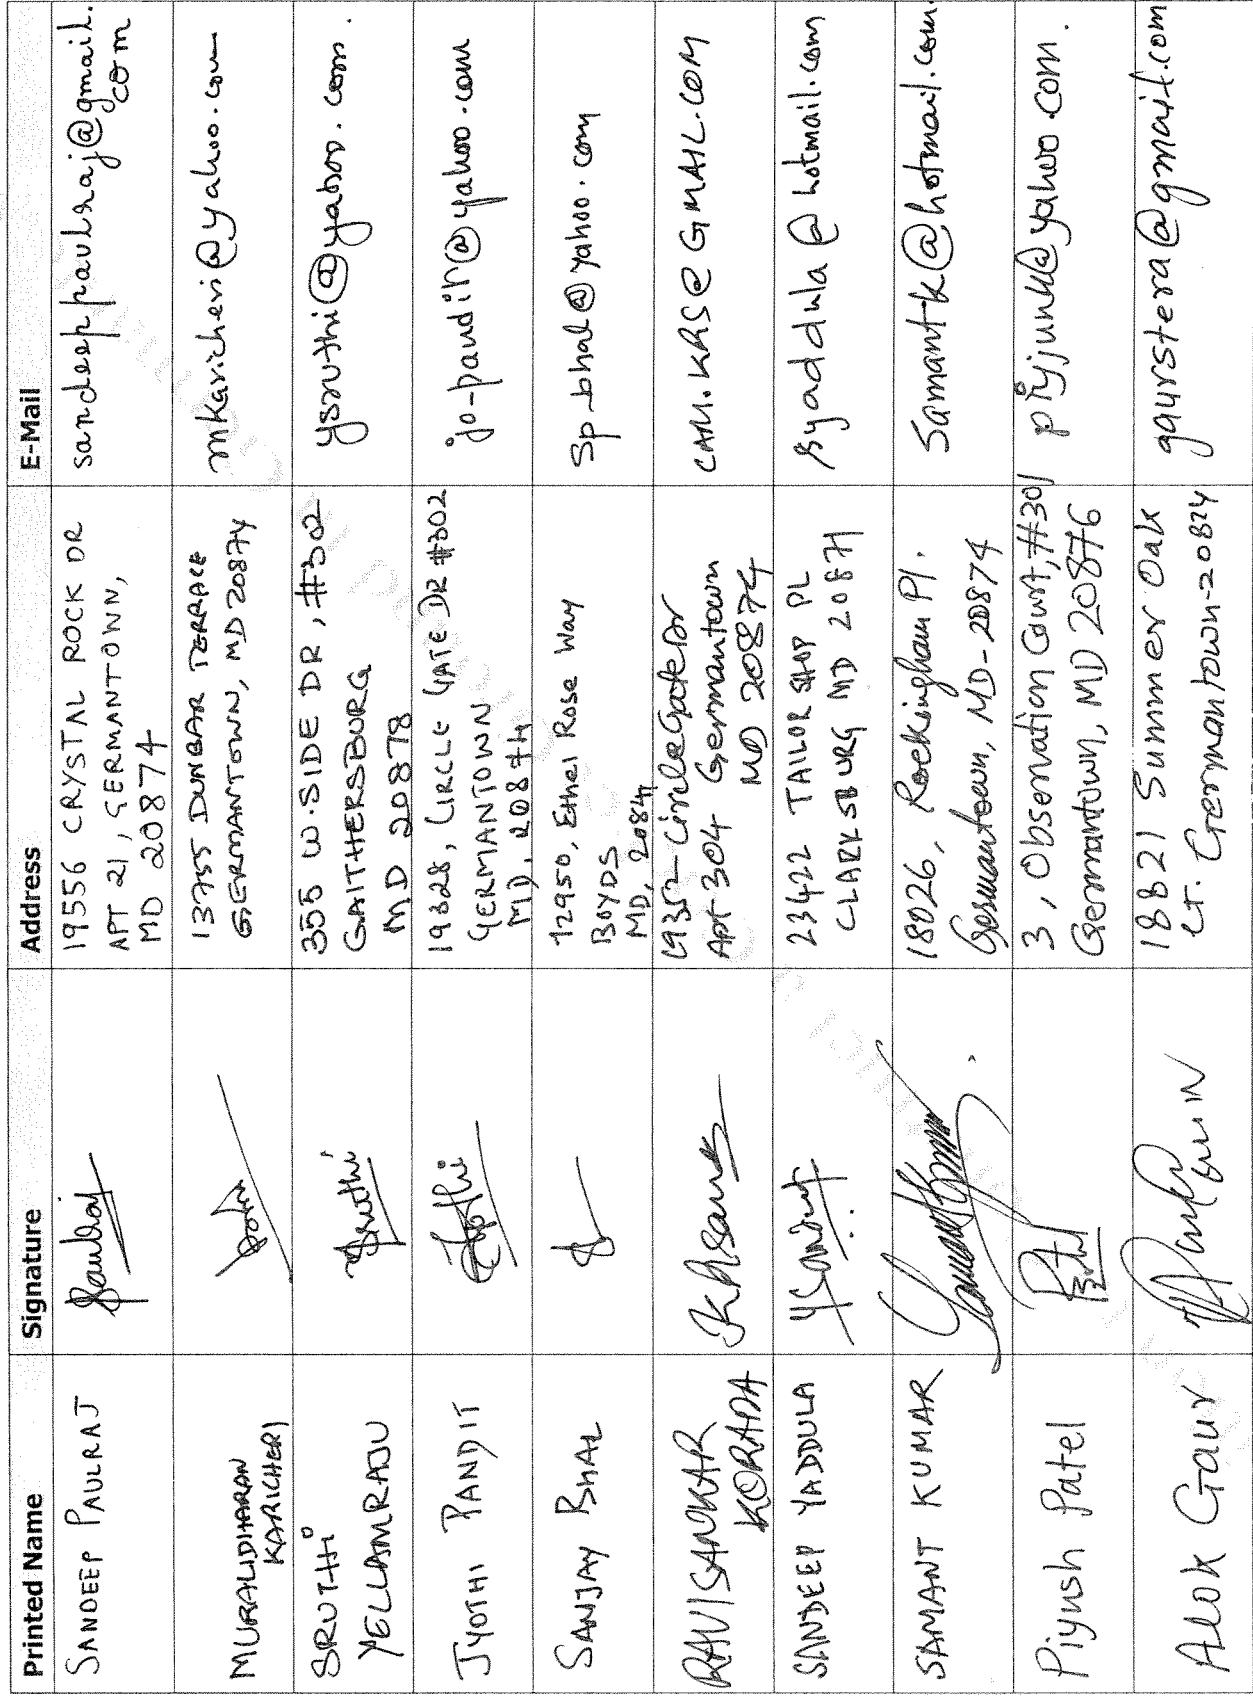 Printed Name Signature Address E-Mail
SANDEEP PAULRAJ
19556 CRYSTAL ROCK DR
APT 21, GERMANTOWN,
MD 20874
sandeeppaulraj@gmail.
com
MURALIDHARAN
KARICHERI
13755 DUNBAR TERRACE
GERMANTOWN, MD 20874
mkaricheri@yahoo.com
SRUTHI
YELLAMRAJU
Sruthi
355 W.SIDE DR, #302
GAITHERSBURG
MD 20878
ysruthi@yahoo.com.
JYOTHI PANDIT
Jyothi
19328, CIRCLE GATE DR #302
GERMANTOWN
MD, 20874
jo-pandit@yahoo.com
SANJAY BHAL
12950, Ethel Rose Way
BOYDS
MD, 20841
sp_bhal@yahoo.com
RAVISANKAR
KORADA
1935 Circle Gate Dr
Apt 304 Germantown
MD 20874
CAM.KRS@GMAIL.COM
SANDEEP YADDULA
23422 TAILOR SHOP PL
CLARKSBURG MD 20871
syaddula@hotmail.com
SAMANT KUMAR
18026, Rockingham Pl.
Germantown, MD-20874
Samantk@hotmail.com.
Piyush Patel
3, Observation Court, #301
Germantown, MD 20876
piyjunk@yahoo.com.
Alok Gaur
18821 Summer Oak
CT. Germantown-20874
gaurstera@gmail.com